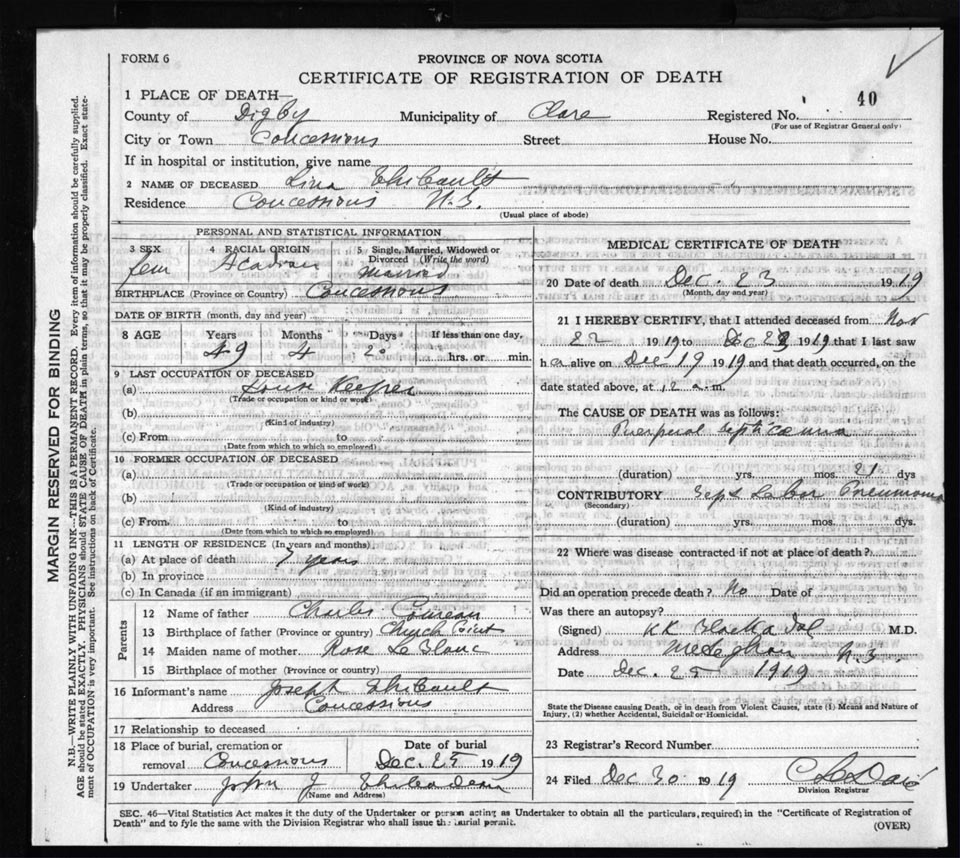 FORM 6
PROVINCE OF NOVA SCOTIA
CERTIFICATE OF REGISTRATION OF DEATH
1 PLACE OF DEATH—
County of Digby Municipality of Clare Registered No. 40
(For use of Registrar General only)
City or Town Concessions Street House No.
If in hospital or institution, give name
2 NAME OF DECEASED Lina Thibault
Residence Concessions N.S.
(Usual place of abode)
PERSONAL AND STATISTICAL INFORMATION
3 SEX 4 RACIAL ORIGIN 5 Single, Married, Widowed or Divorced (Write the word)
Fem Acadian Married
BIRTHPLACE (Province or Country) Concessions
DATE OF BIRTH (month, day and year)
8 AGE Years Months Days If less than one day,
49 4 20 hrs. or min.
9 LAST OCCUPATION OF DECEASED
(a) House Keeper
(Trade or occupation or kind of work)
(b)
(Kind of industry)
(c) From to
(Date from which to which so employed)
10 FORMER OCCUPATION OF DECEASED
(a)
(Trade or occupation or kind of work)
(b)
(Kind of industry)
(c) From to
(Date from which to which so employed)
11 LENGTH OF RESIDENCE (In years and months)
(a) At place of death 7 years
(b) In province
(c) In Canada (if an immigrant)
Parents
12 Name of father Charles Comeau
13 Birthplace of father (Province or country) Church Point
14 Maiden name of mother Rose Le Blanc
15 Birthplace of mother (Province or country)
16 Informant's name Joseph Thibault
Address Concessions
17 Relationship to deceased
18 Place of burial, cremation or removal Concessions Date of burial Dec. 25 1919
19 Undertaker John J Thibadeau
(Name and Address)
MEDICAL CERTIFICATE OF DEATH
20 Date of death Dec. 23 1919
(Month, day and year)
21 I HEREBY CERTIFY, that I attended deceased from Nov
22 1919 to Dec 23 1919 that I last saw
h alive on Dec 19 1919 and that death occurred, on the
date stated above, at 12 a.m.
The CAUSE OF DEATH was as follows:
Puerperal septicaemia
(duration) yrs. mos. 21 dys
CONTRIBUTORY Labor Pneumonia
(Secondary)
(duration) yrs. mos. dys.
22 Where was disease contracted if not at place of death?
Did an operation precede death? No Date of
Was there an autopsy?
(Signed) M.D.
Address Meteghan N.S.
Date Dec. 25 1919
State the Disease causing Death, or in death from Violent Causes, state (1) Means and Nature of
Injury, (2) whether Accidental, Suicidal or Homicidal.
23 Registrar's Record Number
24 Filed Dec 30 1919
Division Registrar
SEC. 46—Vital Statistics Act makes it the duty of the Undertaker or person acting as Undertaker to obtain all the particulars, required, in the "Certificate of Registration of
Death" and to fyle the same with the Division Registrar who shall issue the burial permit.
(OVER)
MARGIN RESERVED FOR BINDING
N.B.—WRITE PLAINLY WITH UNFADING INK—THIS IS A PERMANENT RECORD. Every item of information should be carefully supplied.
AGE should be stated EXACTLY. PHYSICIANS should STATE CAUSE OF DEATH in plain terms, so that it may be properly classified. Exact statement of OCCUPATION is very important. See instructions on back of Certificate.